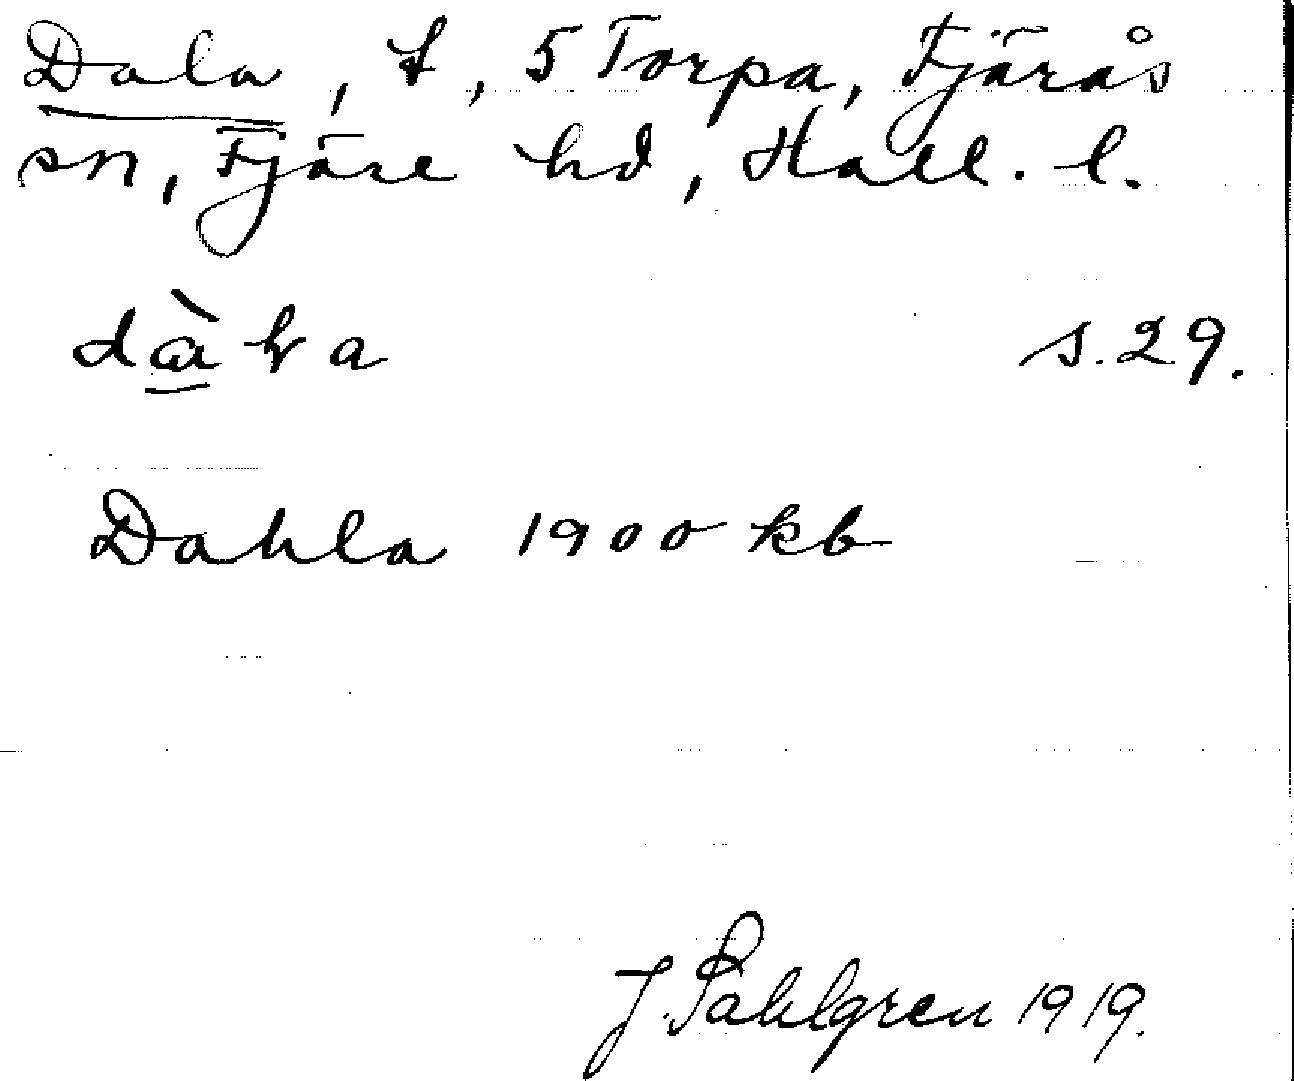 Dala, t, 5 Torpa, Fjärås
sn, Fjäre hd, Hall. l.
s. 29.
Dahla 1900 kb
J. Sahlgren 1919.